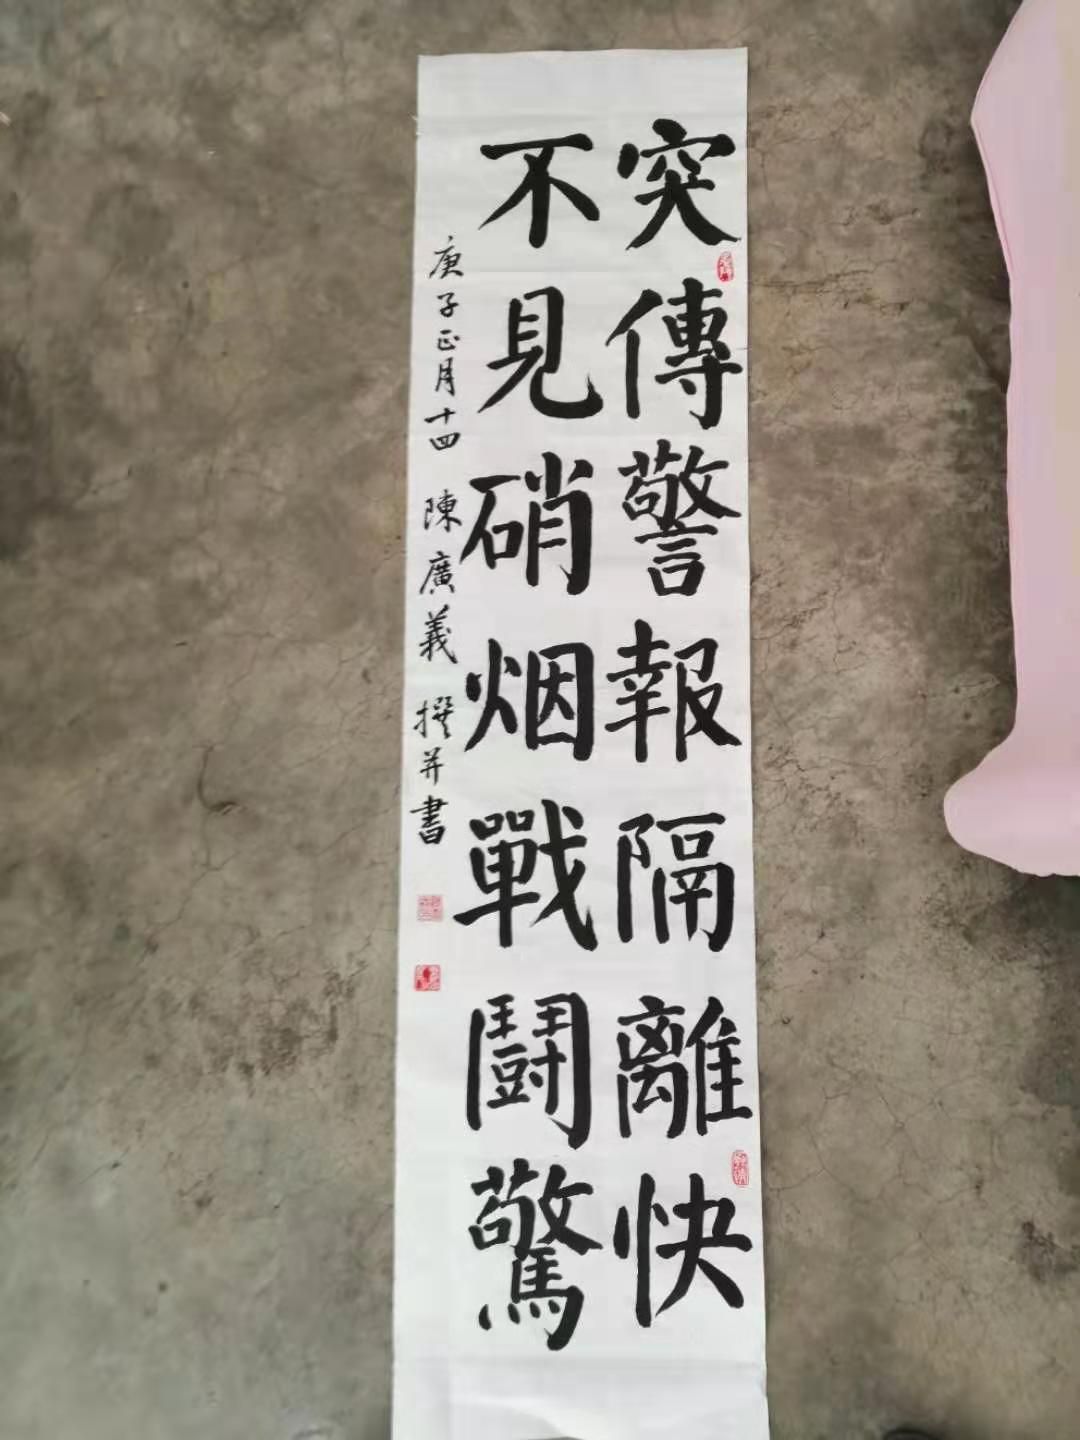 突傳警報隔離快
不見硝烟戰鬪驚
庚子正月十四 陳廣義 撰并書